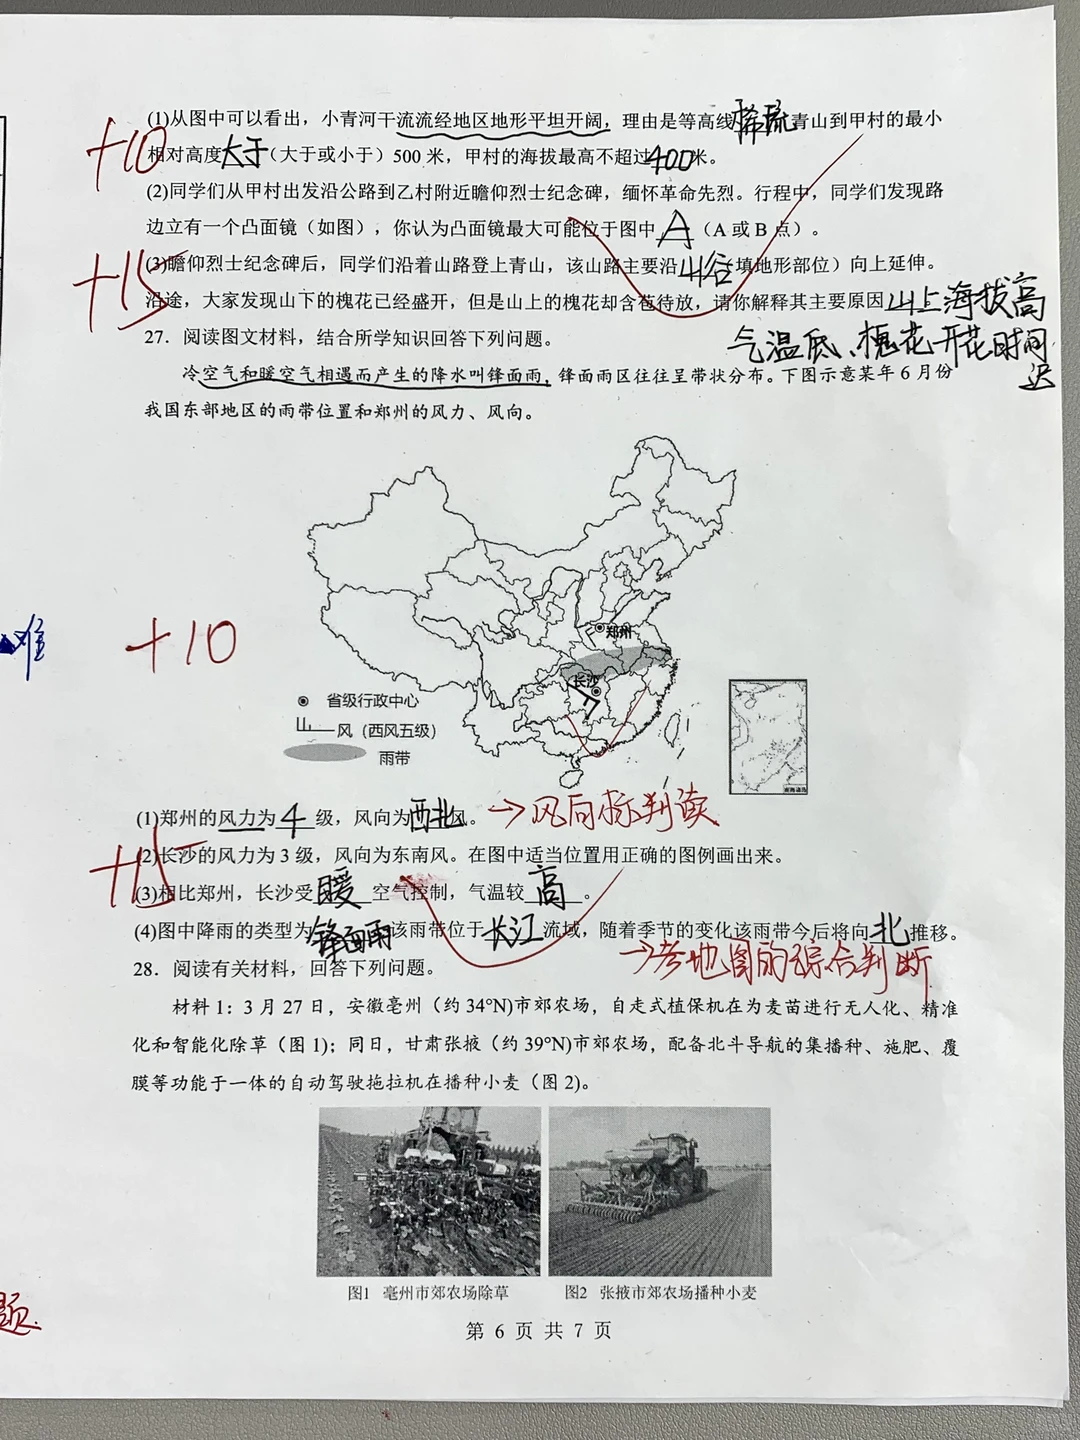 (1)从图中可以看出，小青河干流流经地区地形平坦开阔，理由是等高线稀疏青山到甲村的最小
+10
相对高度大于（大于或小于）500 米，甲村的海拔最高不超过400米。
(2)同学们从甲村出发沿公路到乙村附近瞻仰烈士纪念碑，缅怀革命先烈。行程中，同学们发现路
边立有一个凸面镜（如图），你认为凸面镜最大可能位于图中A（A 或 B 点）。
+15
(3)瞻仰烈士纪念碑后，同学们沿着山路登上青山，该山路主要沿山谷（填地形部位）向上延伸。
沿途，大家发现山下的槐花已经盛开，但是山上的槐花却含苞待放，请你解释其主要原因山上海拔高
气温低、槐花开花时间
迟
27．阅读图文材料，结合所学知识回答下列问题。
冷空气和暖空气相遇而产生的降水叫锋面雨，锋面雨区往往呈带状分布。下图示意某年 6 月份
我国东部地区的雨带位置和郑州的风力、风向。
难
+10
郑州
长沙
省级行政中心
风（西风五级）
雨带
南海诸岛
(1)郑州的风力为4级，风向为西北风。→风向标判读
(2)长沙的风力为 3 级，风向为东南风。在图中适当位置用正确的图例画出来。
+15
(3)相比郑州，长沙受暖空气控制，气温较高。
(4)图中降雨的类型为锋面雨该雨带位于长江流域，随着季节的变化该雨带今后将向北推移。
→考地图的综合判断
28．阅读有关材料，回答下列问题。
材料 1：3 月 27 日，安徽亳州（约 34°N)市郊农场，自走式植保机在为麦苗进行无人化、精准
化和智能化除草（图 1)；同日，甘肃张掖（约 39°N)市郊农场，配备北斗导航的集播种、施肥、覆
膜等功能于一体的自动驾驶拖拉机在播种小麦（图 2)。
图1 亳州市郊农场除草
图2 张掖市郊农场播种小麦
题
第 6 页 共 7 页